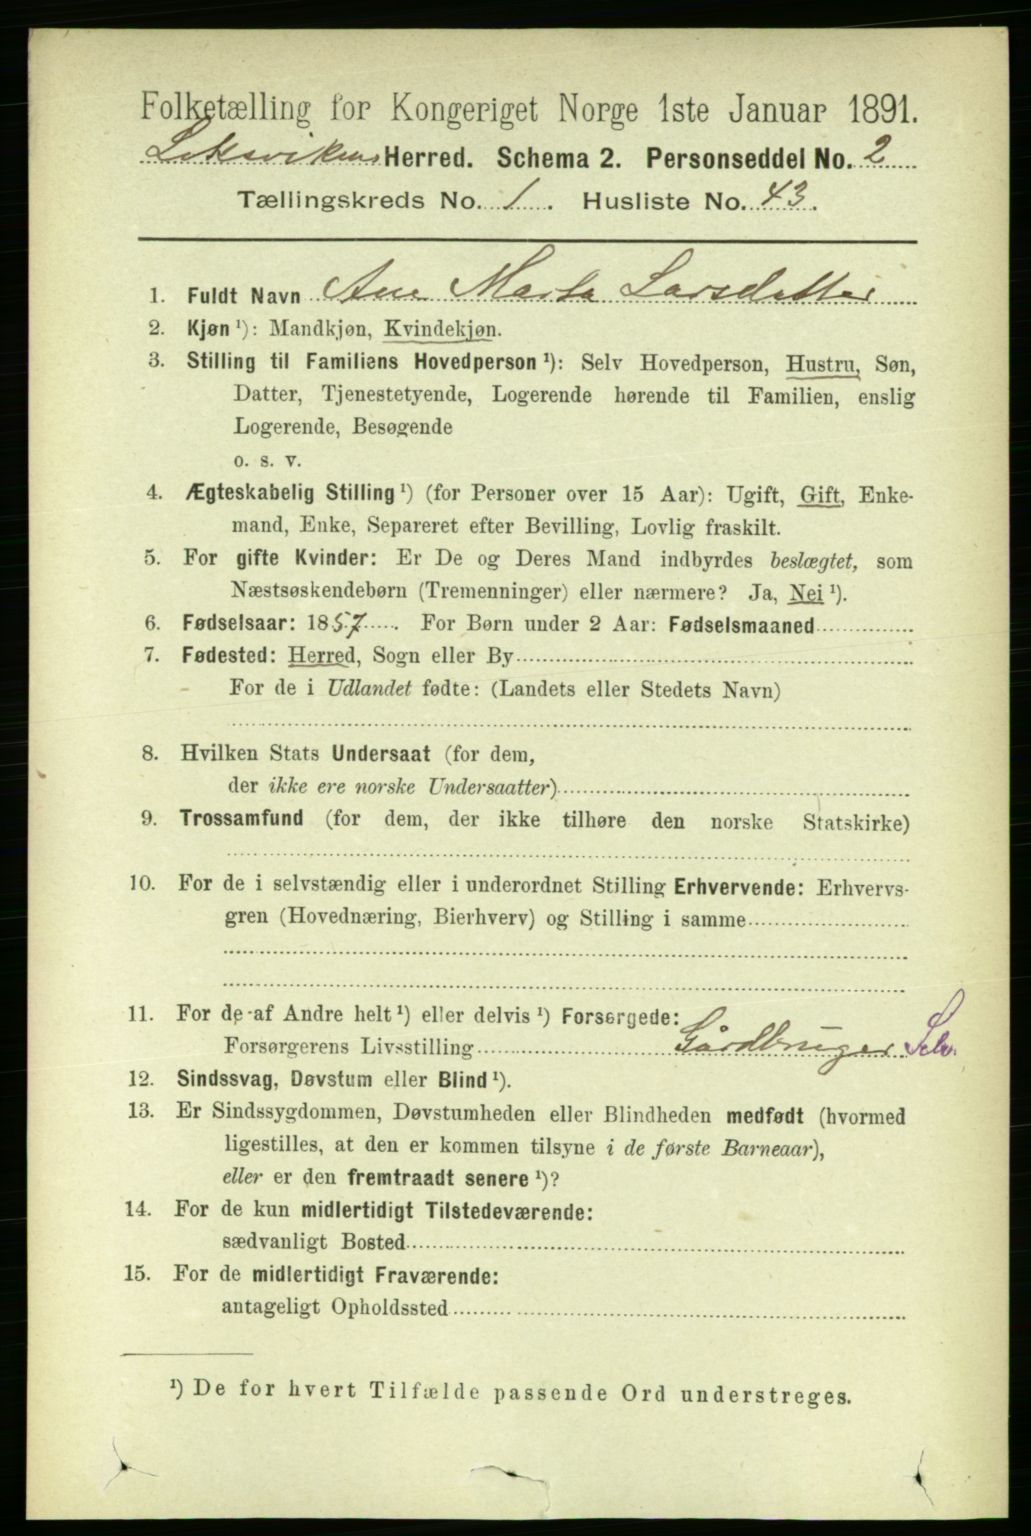 Folketælling for Kongeriget Norge 1ste Januar 1891.
Leksvikens Herred. Schema 2. Personseddel No. 2
Tællingskreds No. 1. Husliste No. 43.
1. Fuldt Navn Ane Marta Larsdatter
2. Kjøn ¹): Mandkjøn, Kvindekjøn.
3. Stilling til Familiens Hovedperson ¹): Selv Hovedperson, Hustru, Søn,
Datter, Tjenestetyende, Logerende hørende til Familien, enslig
Logerende, Besøgende
o. s. v.
4. Ægteskabelig Stilling ¹) (for Personer over 15 Aar): Ugift, Gift, Enke-
mand, Enke, Separeret efter Bevilling, Lovlig fraskilt.
5. For gifte Kvinder: Er De og Deres Mand indbyrdes beslægtet, som
Næstsøskendebørn (Tremenninger) eller nærmere? Ja, Nei ¹).
6. Fødselsaar: 1857. For Børn under 2 Aar: Fødselsmaaned
7. Fødested: Herred, Sogn eller By
For de i Udlandet fødte: (Landets eller Stedets Navn)
8. Hvilken Stats Undersaat (for dem,
der ikke ere norske Undersaatter)
9. Trossamfund (for dem, der ikke tilhøre den norske Statskirke)
10. For de i selvstændig eller i underordnet Stilling Erhvervende: Erhvervs-
gren (Hovednæring, Bierhverv) og Stilling i samme
11. For de af Andre helt ¹) eller delvis ¹) Forsørgede:
Forsørgerens Livsstilling Gårdbruger Selv.
12. Sindssvag, Døvstum eller Blind ¹).
13. Er Sindssygdommen, Døvstumheden eller Blindheden medfødt (hvormed
ligestilles, at den er kommen tilsyne i de første Barneaar),
eller er den fremtraadt senere ¹)?
14. For de kun midlertidigt Tilstedeværende:
sædvanligt Bosted
15. For de midlertidigt Fraværende:
antageligt Opholdssted
¹) De for hvert Tilfælde passende Ord understreges.